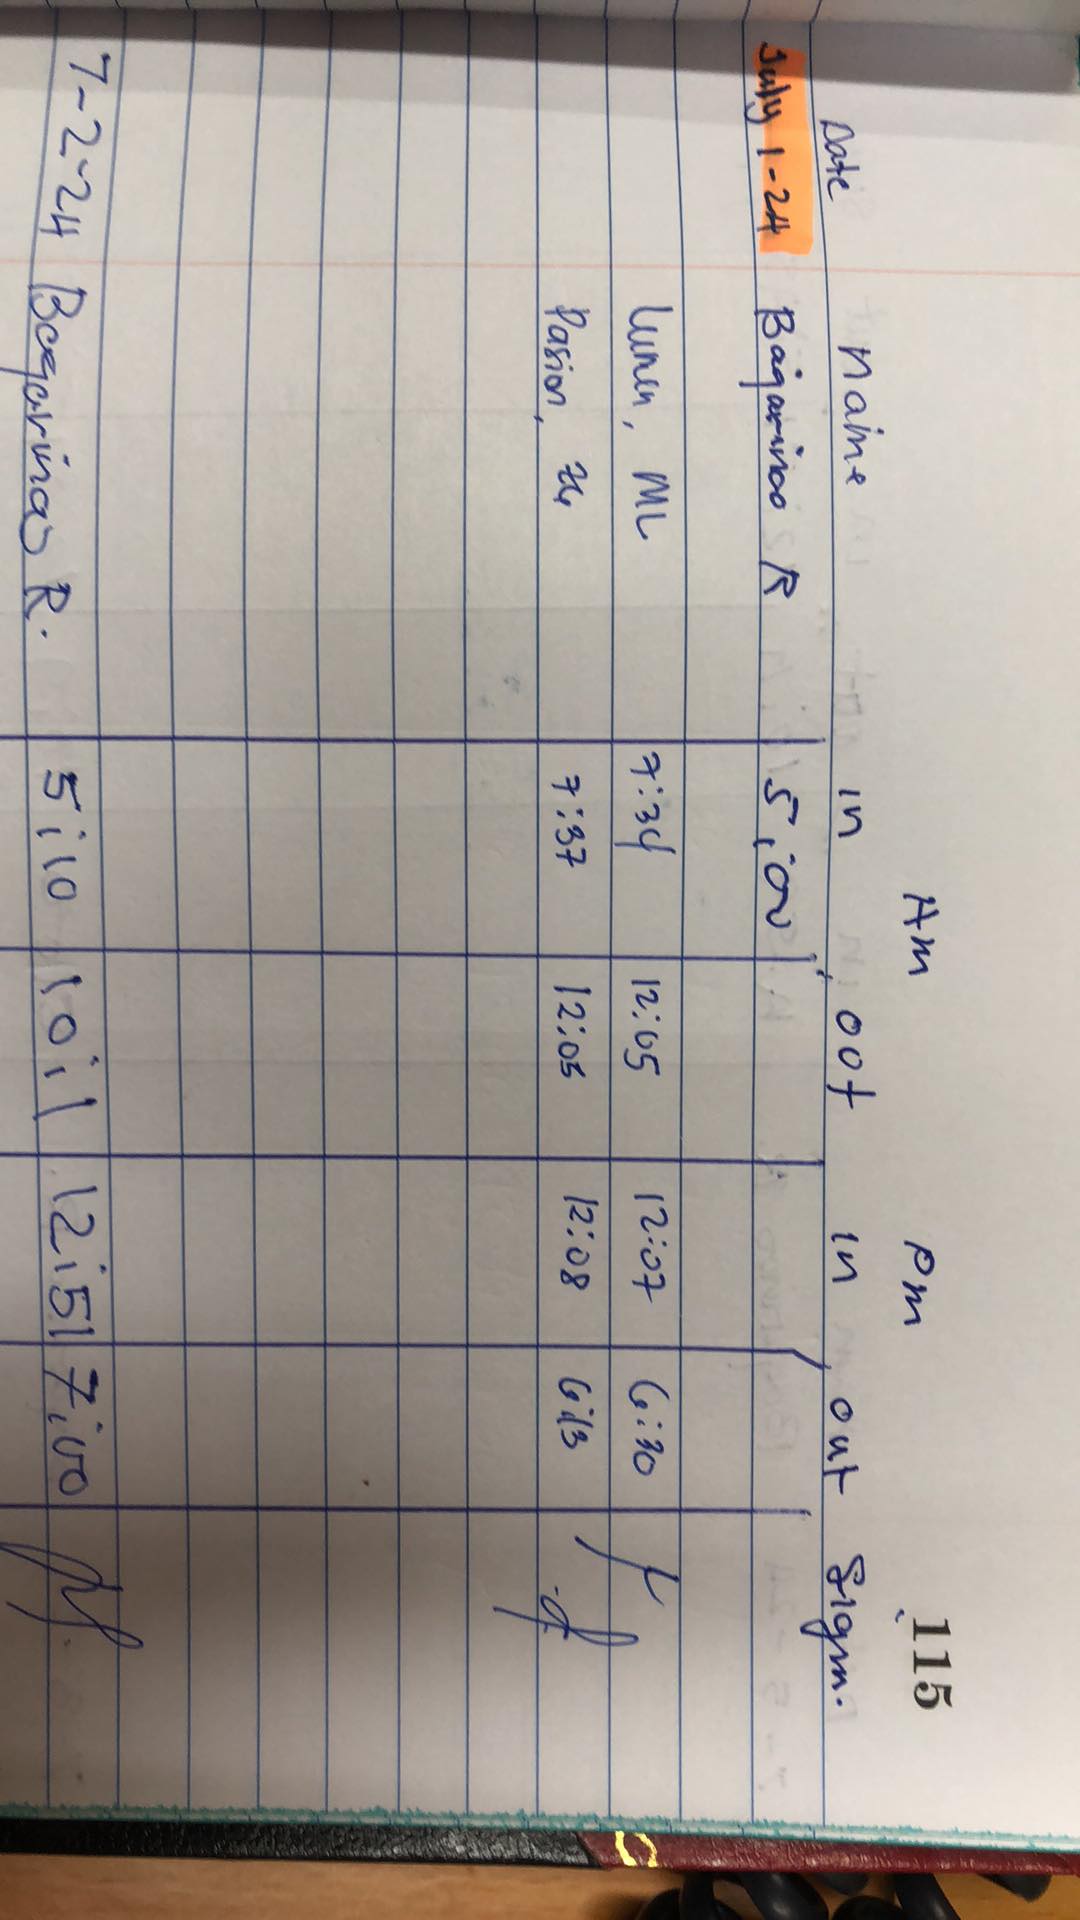 115
Am Pm
Date Name in oot in out Sign.
July 1-24 Bagarinao R 5:00
Lunen, ML 7:34 12:05 12:07 6:30
Pasion, 7:37 12:03 12:08 6:13
7-2-24 Bagarinao R. 5:10 10:1 12:51 7:00